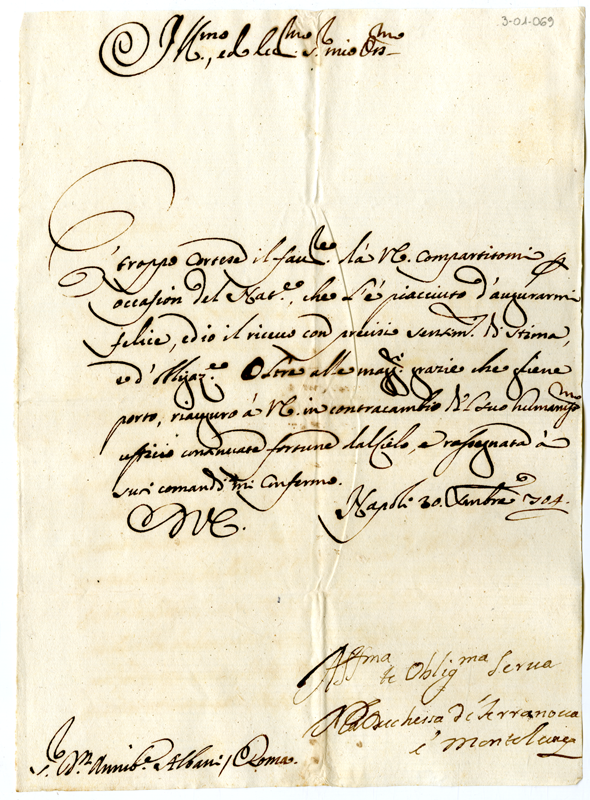 3-01-069
Ill.mo, ed Ecc.mo S.r mio Oss.mo
È troppo cortese il fau.re da VE. compartitomi p
occasion del Nat.e, che s'è piaciuto d'augurarmi
felice, ed io il riceuo con precisi sentim.ti di stima,
e d'obligaz.e Oltre alle mag.ri grazie che gliene
porto, riauguro à VE. in contracambio del suo humaniss.mo
ufficio continuate fortune dal Cielo, e rassegnata à
suoi comandi mi confermo. Napoli 30. Xmbre 1704.
D VE.
Aff.ma
te Oblig.ma Serua
La Duchessa di Terranoua
e Monteleone
S.r D. Annib.e Albani / Roma.